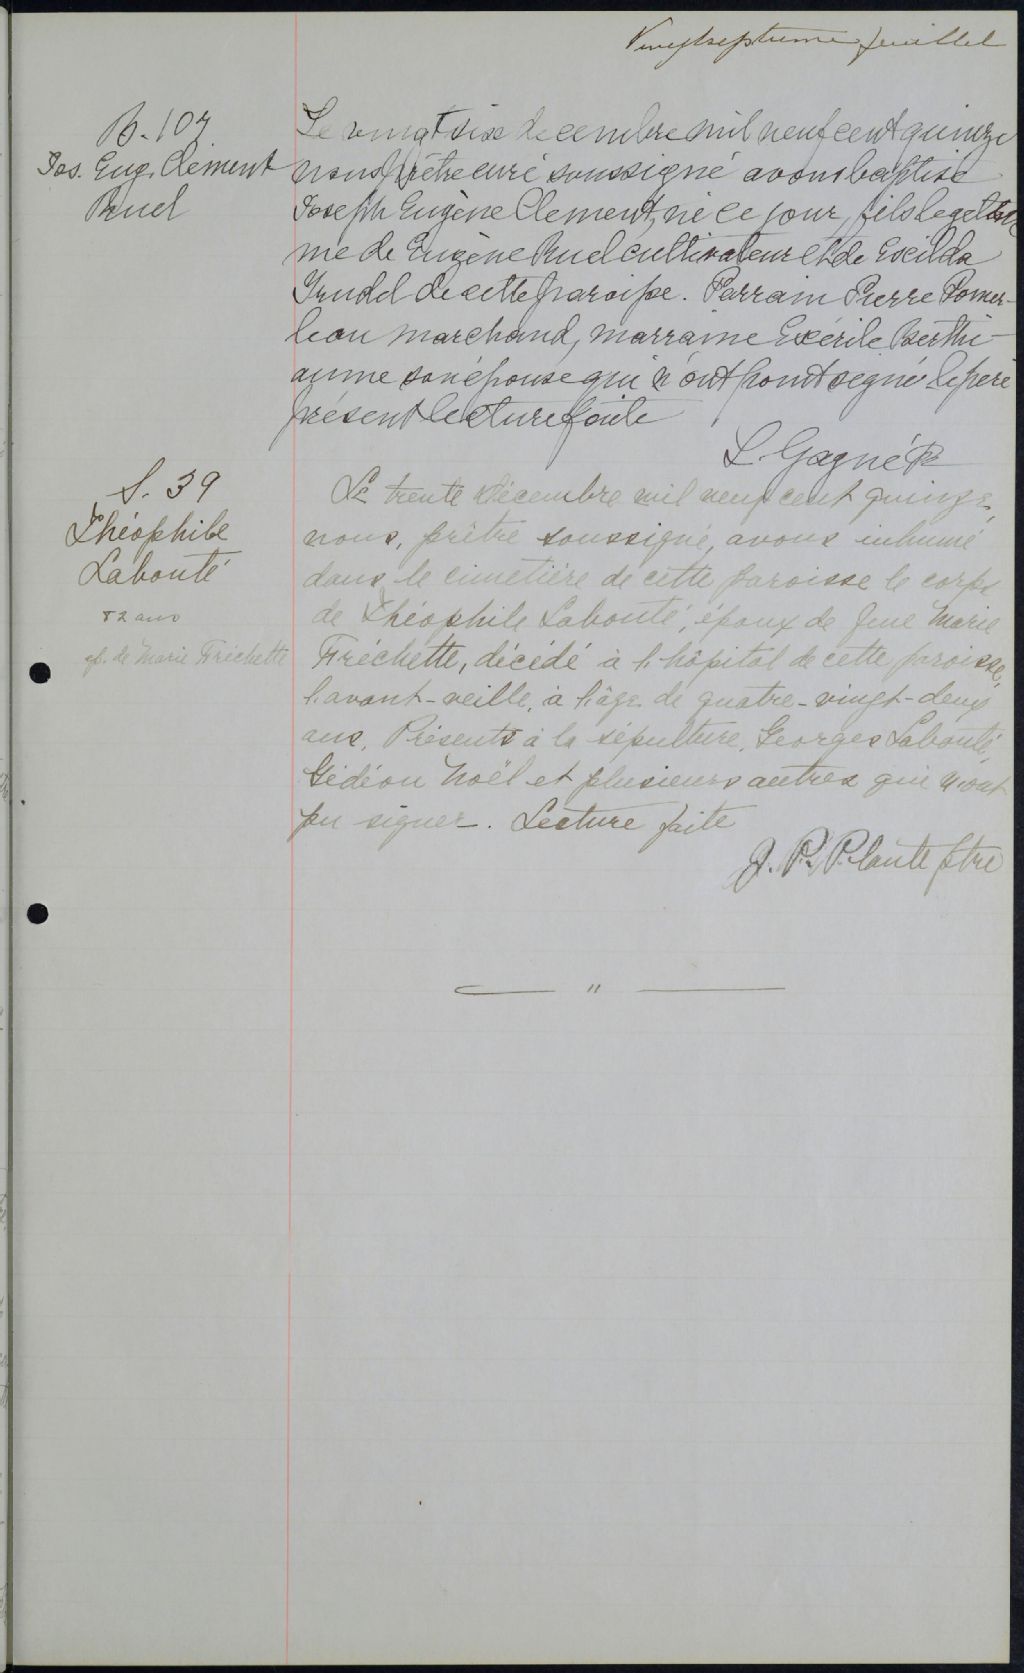 Vingtseptieme feuillet
B. 107
Jos. Eug. Clément
Ruel
Le vingt six decembre mil neuf cent quinze
nous prêtre curé soussigné avons baptisé
Joseph Eugène Clement, né ce jour, fils legeti
me de Eugène Ruel cultivateur et de Exilda
Trudel de cette paroisse. Parrain Pierre Pomer-
leau marchand, marraine Exérile Berthi-
aume son épouse qui n'ont point signé le père
présent lecture faite
L. Gagné Ptr
S. 39
Théophile
Labonté
82 ans
ép. de Marie Fréchette
Le trente décembre mil neuf cent quinze,
nous, prêtre soussigné, avons inhumé
dans le cimetière de cette paroisse le corps
de Théophile Labonté, époux de feue Marie
Fréchette, décédé à l'hôpital de cette paroisse,
l'avant-veille, à l'âge de quatre-vingt-deux
ans. Présents à la sépulture, Georges Labonté,
Gédéon Noël et plusieurs autres qui n'ont
pu signer. Lecture faite
J. P. Plante ptre
"